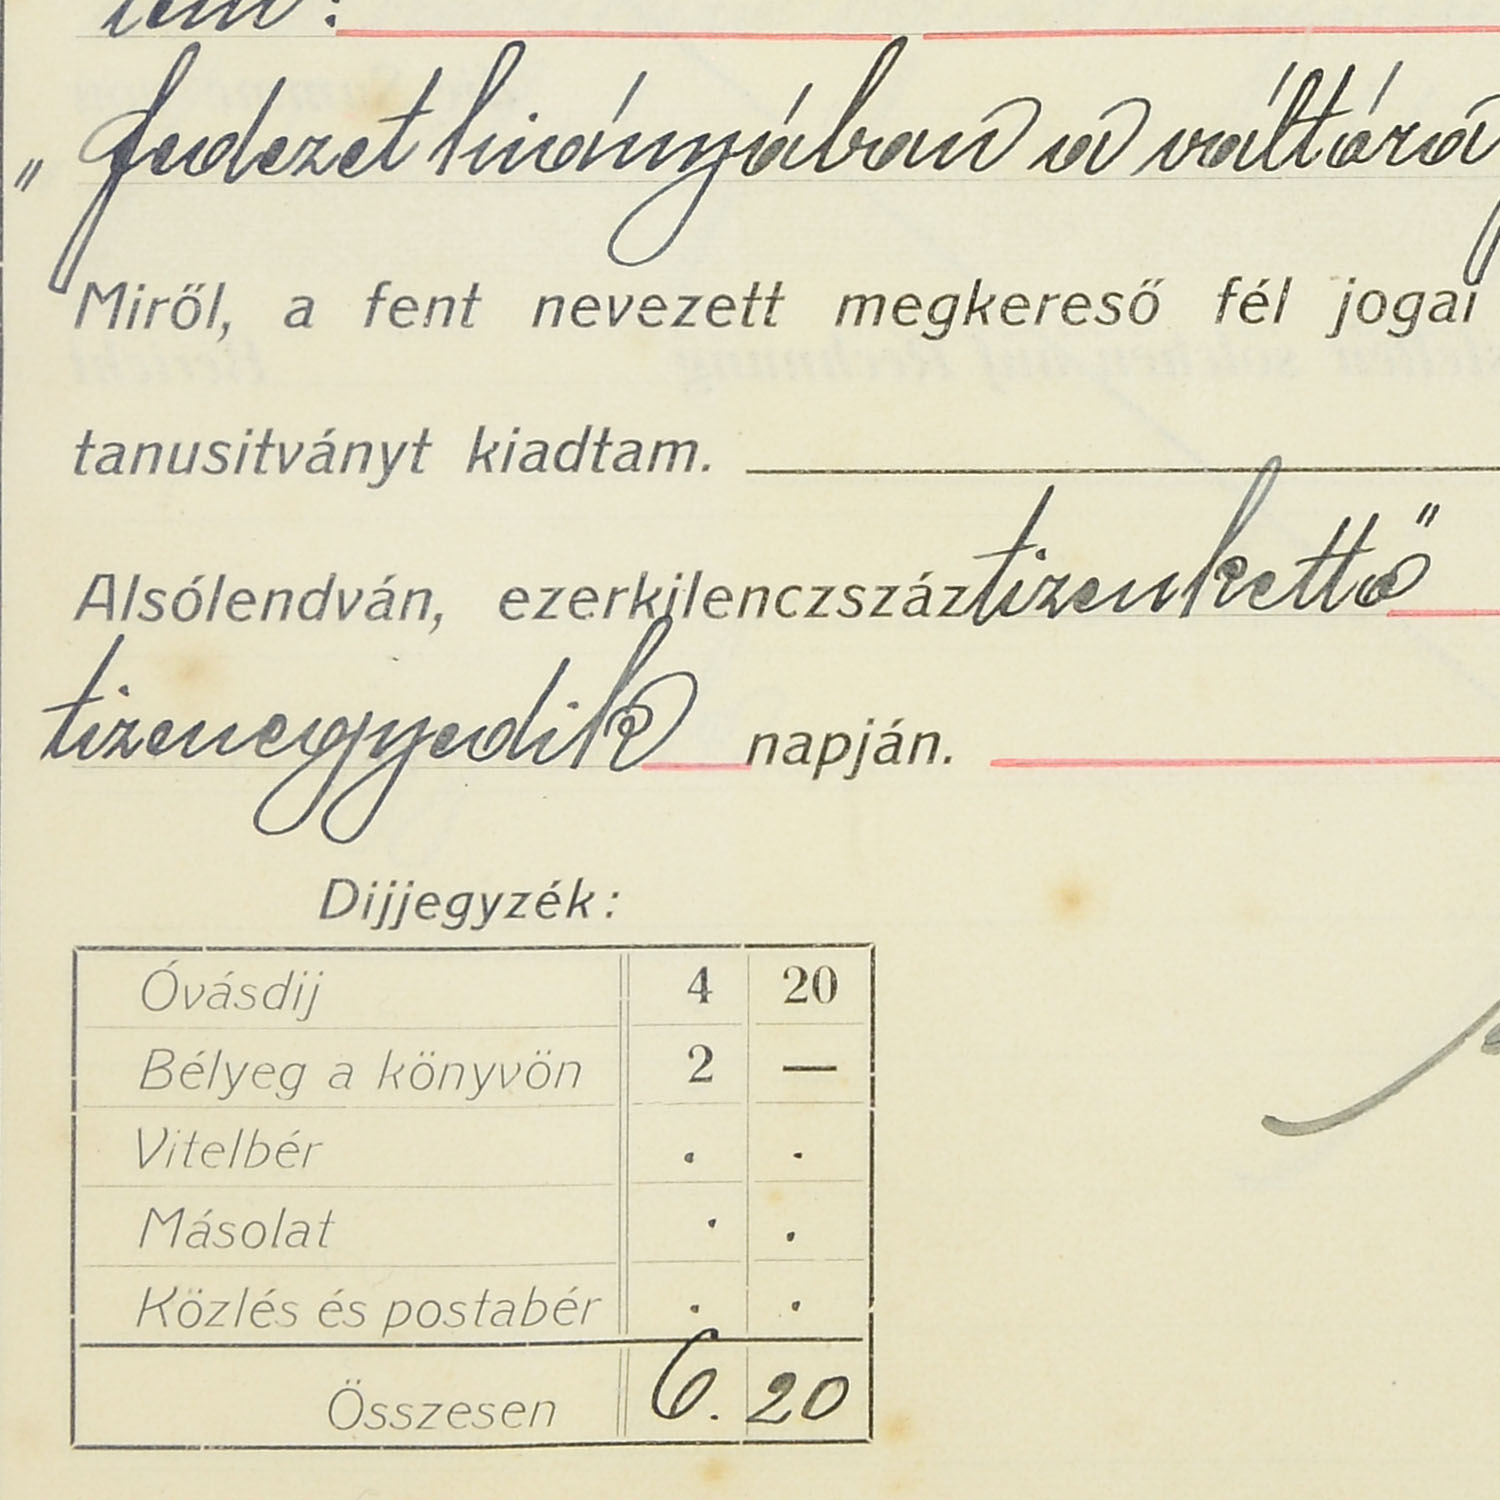 „ fedezet hiányában a váltóra
Miről, a fent nevezett megkereső fél jogai
tanusitványt kiadtam.
Alsólendván, ezerkilenczszáztizenkettő
tizenegyedik napján.
Dijjegyzék:
Óvásdij 4 20
Bélyeg a könyvön 2 —
Vitelbér . .
Másolat . .
Közlés és postabér . .
Összesen 6. 20